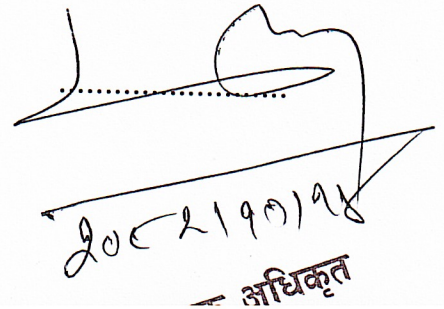 २०८२।१०।१४
अधिकृत